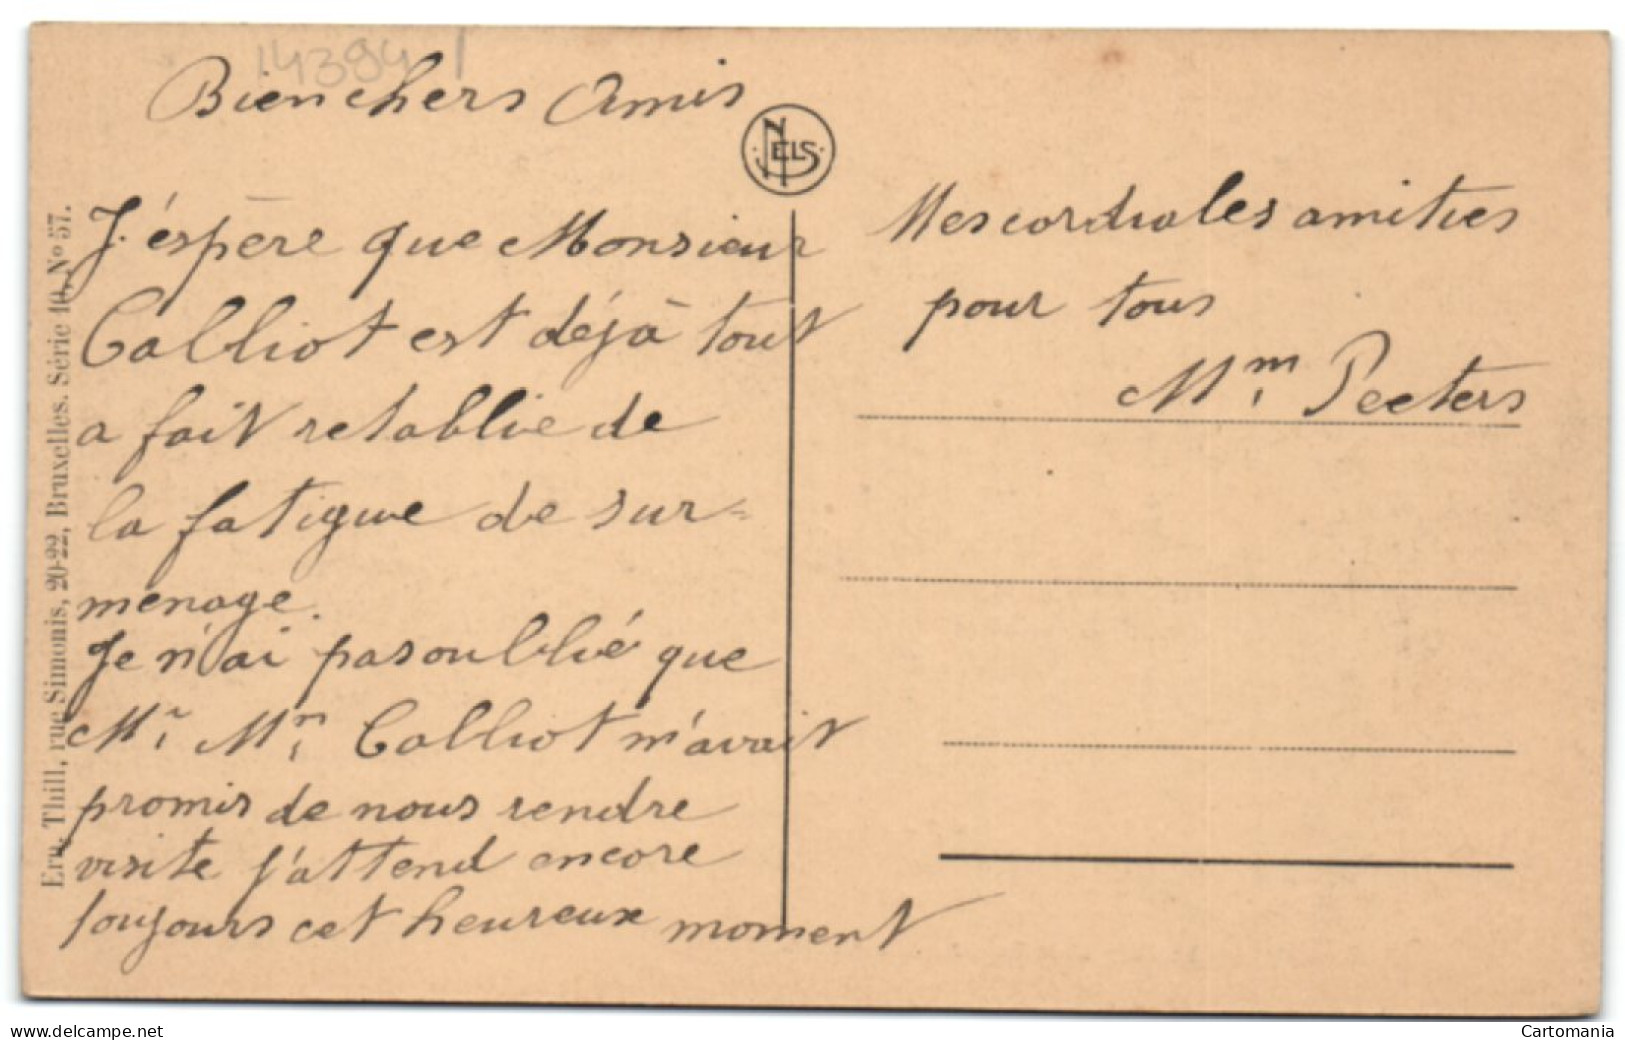 143941
Bien chers Amis
NELS
J'éspère que Monsieur
Calliot est déjà tout
a fait retablie de
la fatigue de sur=
menage.
Je n'ai pas oublié que
Mr Mm Calliot m'avait
promis de nous rendre
visite j'attend encore
toujours cet heureux moment
Mes cordiales amitiés
pour tous
Mm Peeters
Ern. Thill, rue Simonis, 20-22, Bruxelles. Série 10, No 57.
www.delcampe.net
Cartomania